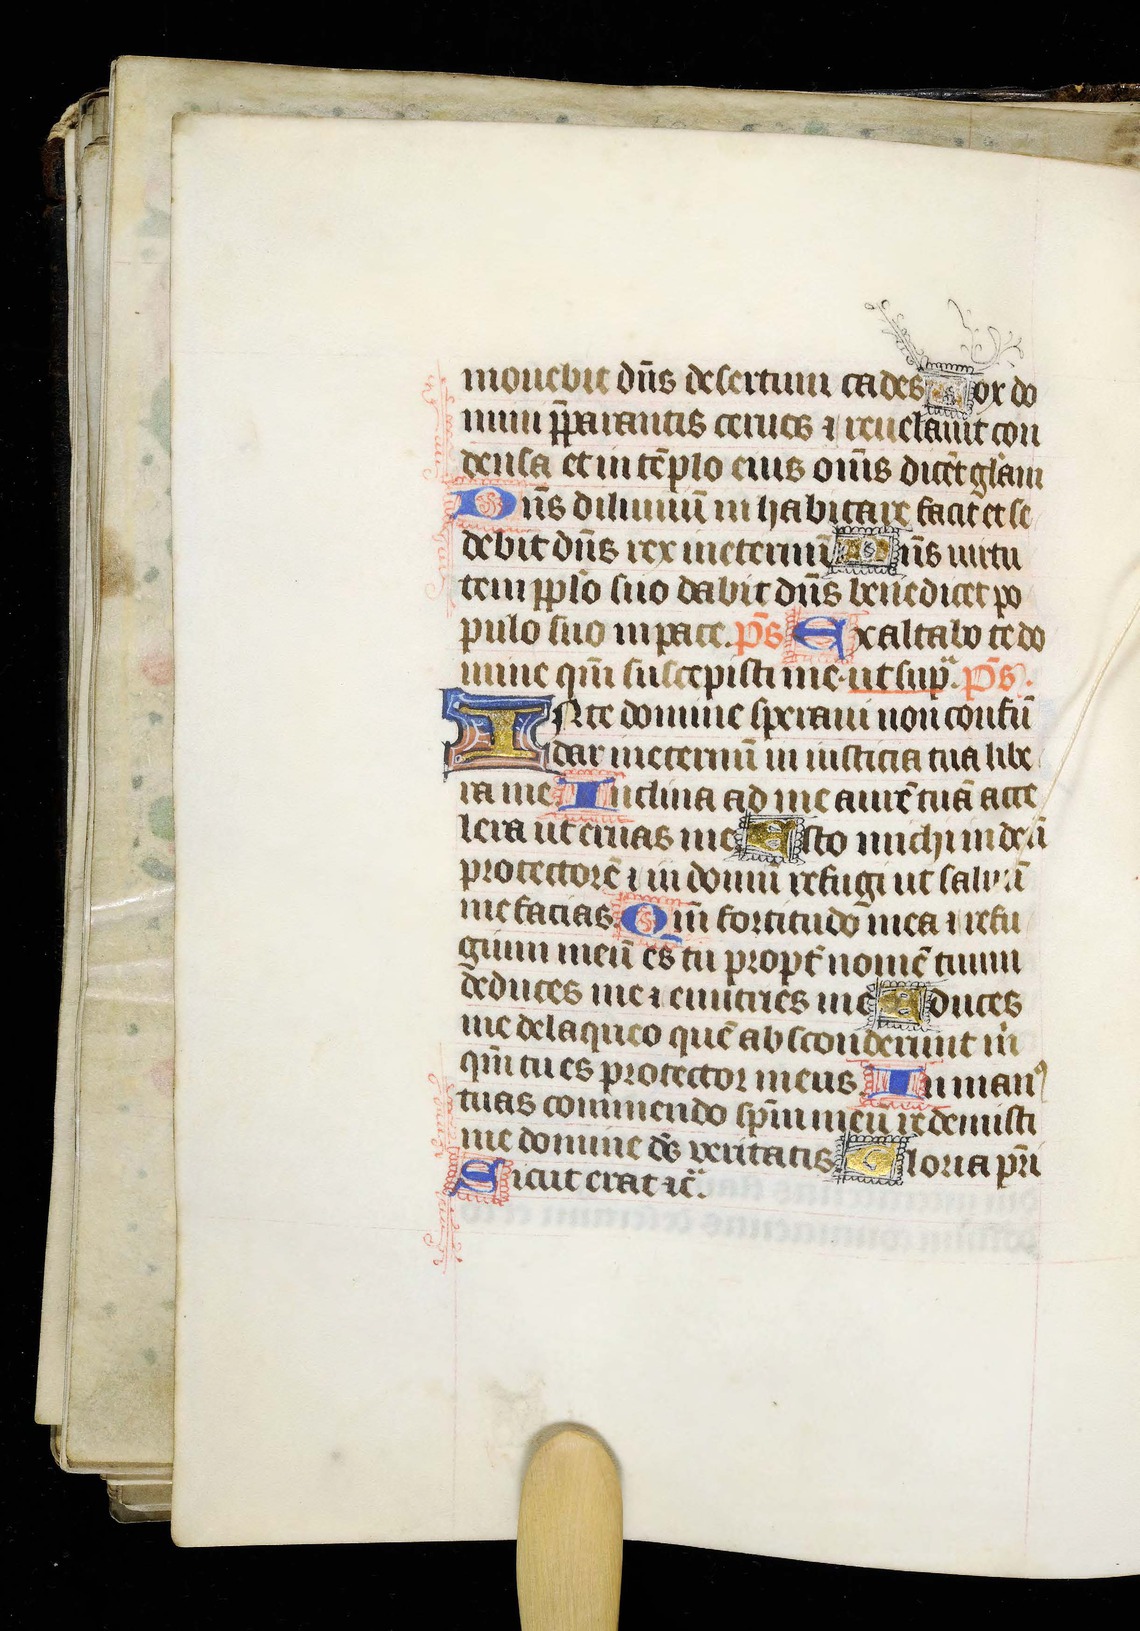 mouebit dñs desertum cades Uox do
mini p̄parantis ceruos ⁊ reuelauit con
densa et in tēplo eius om̄s dicēt glām
Dñs diluuiū inhabitare facit et se
debit dñs rex in eternū Dñs uirtu
tem pplo suo dabit dñs benedicet po
pulo suo in pace. p̄s Exaltabo te do
mine qm̄ suscepisti me. ut sup̄. p̄s.
IN te domine speraui non confū
dar in eternū in iusticia tua libe
ra me Inclina ad me aurē tuā acce
lera ut eruas me Esto michi in deū
protectorē ⁊ in domū refugi ut saluū
me facias Qm̄ fortitudo mea ⁊ refu
gium meū es tu propt̄ nomē tuum
deduces me ⁊ enutries me Educes
me de laqueo quē absconderunt m̄
qm̄ tu es protector meus In manꝰ
tuas commendo spm̄ meū redemisti
me domine ds̄ veritatis Gloria pr̄i
Sicut erat ⁊c̄.